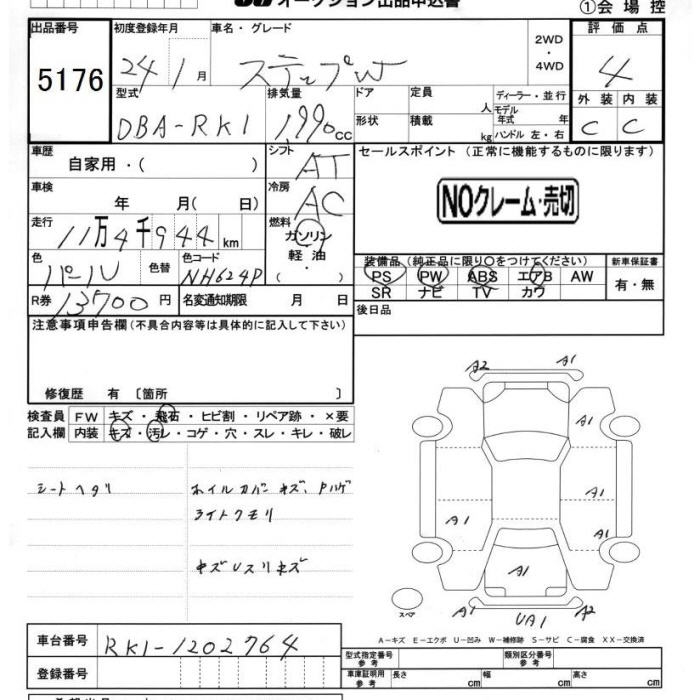 オークション出品申込書
①会場控
出品番号
5176
初度登録年月
24 1月
車名・グレード
ステップW
2WD
・
4WD
評価点
4
外装 内装
C C
型式
DBA-RK1
排気量
1990cc
ドア
形状
定員 人
積載 kg
ディーラー・並行
モデル年式 年
ハンドル 左・右
車歴
自家用・( )
シフト
AT
セールスポイント (正常に機能するものに限ります)
NOクレーム・売切
車検
年 月( 日)
冷房
AC
走行
11万4千944km
燃料
ガソリン
軽油
( ・ )
色
パール
色替
色コード
NH624P
装備品 (純正品に限り○をつけてください)
PS PW ABS エアB AW
SR ナビ TV カワ
新車保証書
有・無
R券
13700円
名変通知期限 月 日
後日品
注意事項申告欄(不具合内容等は具体的に記入して下さい)
修復歴 有 〔箇所 〕
検査員
記入欄
FW キズ・飛石・ヒビ割・リペア跡・×要
内装 キズ・汚レ・コゲ・穴・スレ・キレ・破レ
シートヘタリ
ホイルカバーキズ、Pハゲ
ライトクモリ
キズUスリキズ
A2 A1
A1
A1
A1 A1
A1
A1 UA1 A2
スペア
A-キズ E-エクボ U-凹み W-補修跡 S-サビ C-腐食 XX-交換済
車台番号
RK1-1202764
登録番号
型式指定番号
参考
類別区分番号
参考
車庫証明用
参考
長さ cm
幅 cm
高さ cm